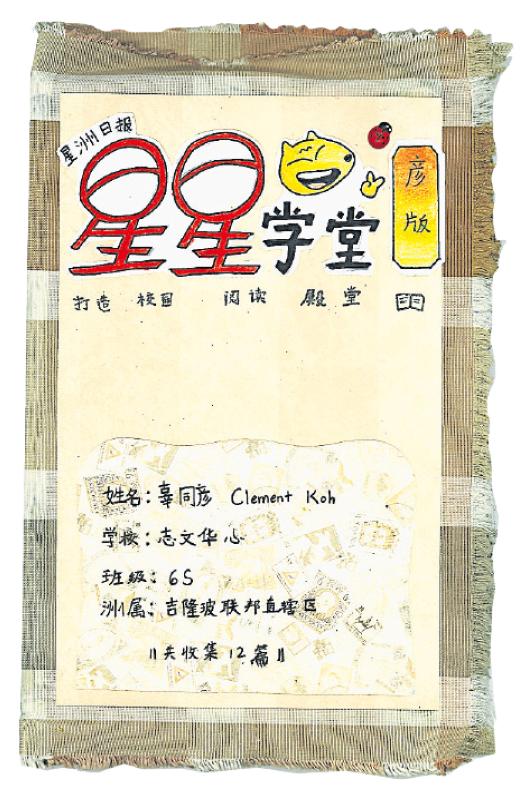 星洲日报
星星学堂
彦版
打造 校园 阅读 殿堂
姓名：辜同彦 Clement Koh
学校：志文华小
班级：6S
洲属：吉隆波联邦直辖区
॥共收集12篇॥